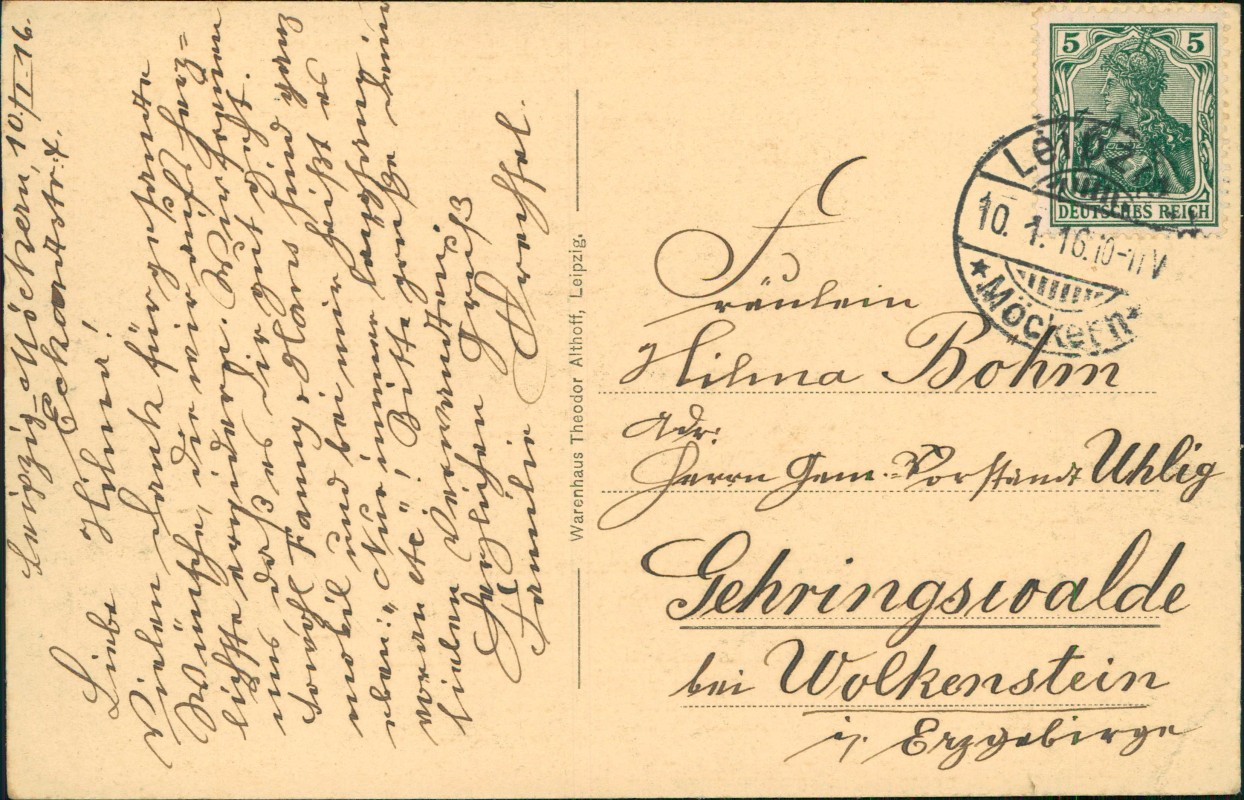 Leipzig-Möckern, 10/I.16.
Eckartstr. 4.
Liebe Hilma!
Vielen Dank für gesandte
Wünsche, die wir auf's herz=
lichste erwidern. Wir freuen
uns daß es Dir gut geht.
Sowohl Fanny & Hans sind ganz
mobil und bei mir heißt es
eben: „Nur immer langsam
voran etc"! Bitte grüße Deine
lieben Verwandten
Herzlichen Gruß
Familie
Warenhaus Theodor Althoff, Leipzig.
5 5
DEUTSCHES REICH
Leipzig
10. 1. 16. 10-11V
*Möckern*
Fräulein
Hilma Bohm
Adr:
Herrn Gem.-Vorstandt Uhlig
Gehringswalde
bei Wolkenstein
i/ Erzgebirge